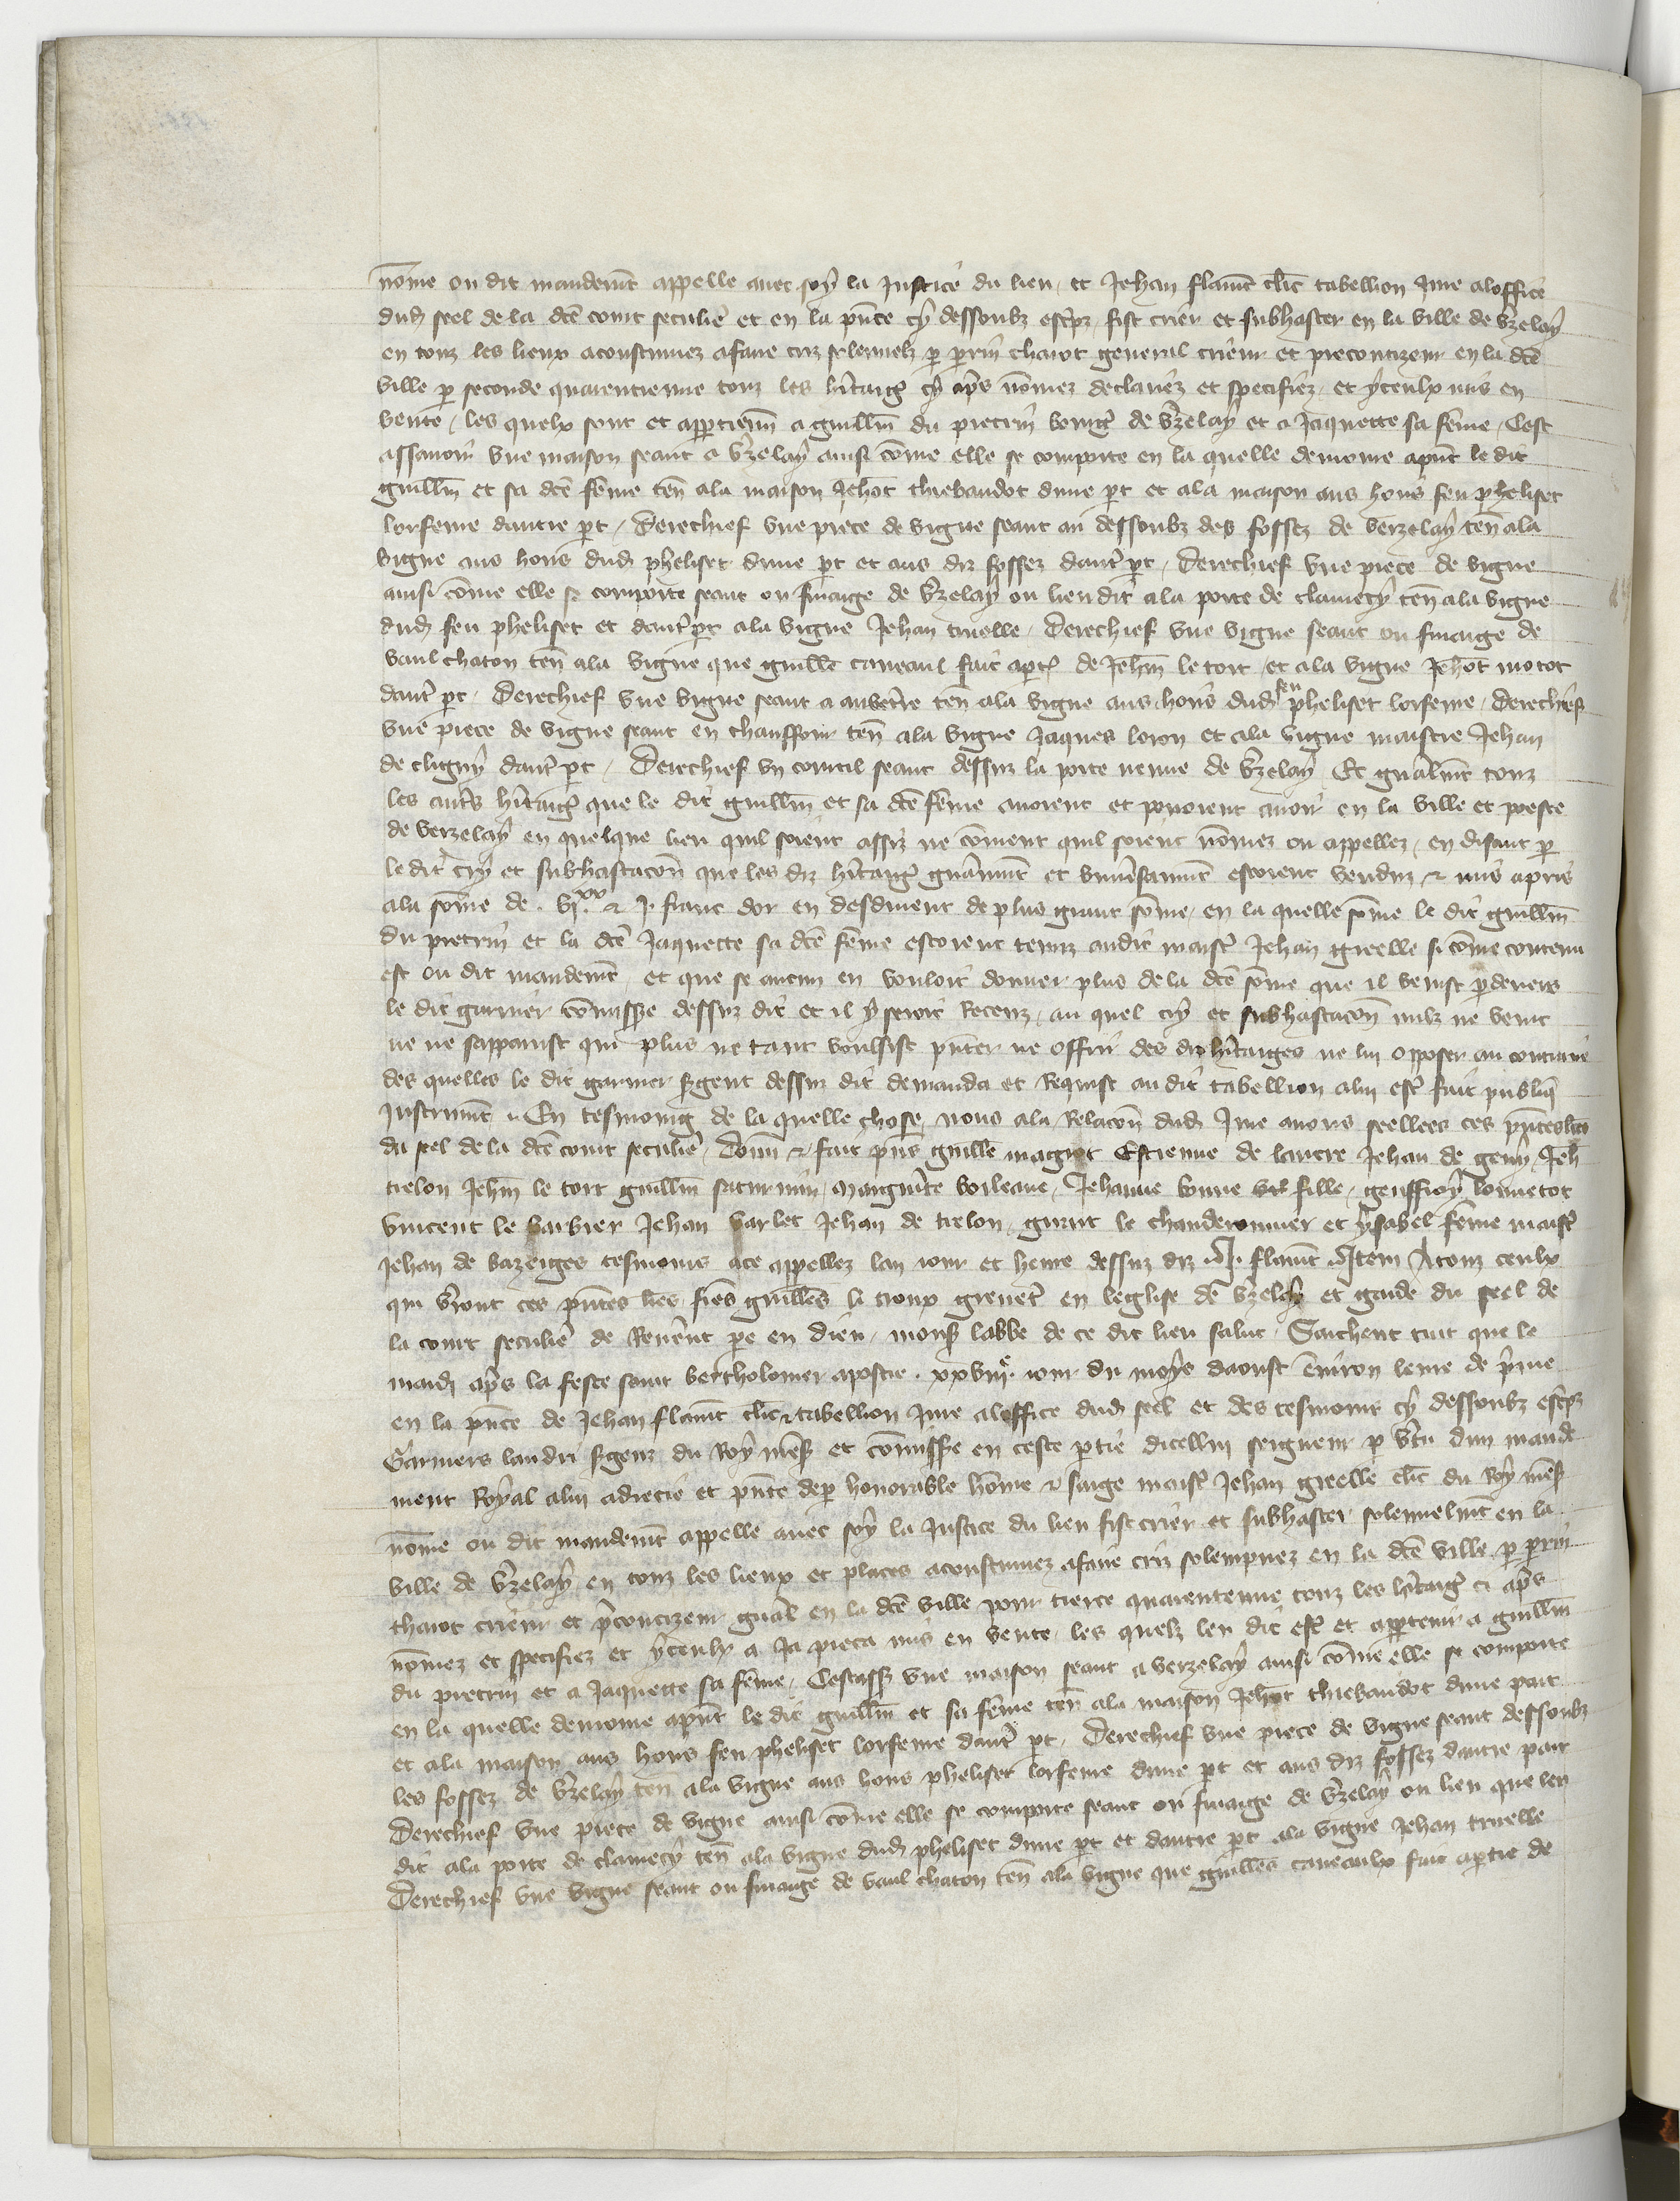 nōme ou dit mandemt̄ appelle avec soy la Justice du lieu et Jehan flamt̄ cl̄ic tabellion Jure aloffice
dud seel de la dcē court seculiē et en la pn̄ce cy dessoubz escrīpz fist crier et subhaster en la ville de Vzelay
en touz les lieux acoustumez afaire criz solennelz p prīn thaiot general crieur et preconizeur en la dcē
ville p seconde quarentienne touz les hītaigˀ cy apˢ nōmez declairez et specifiez et yceulx mis en
vente les quelx sont et apptienn̄ a guillm̄ du pietrin bergˀ de Vzelay et a Jaquette sa fēme Cest
assavoir vne maison seant a Vzelay ainsi cōme elle se comporte en la quelle demoure apn̄t le dit
guillm̄ et sa dcē fēme ten̄ ala maison Jehot thiebaudot dune pt et ala maison aus hoirs feu pheliset
lorfeure dautre pt Derechief vne piece de vigne seant au dessoubz des fossez de Verzelay ten̄ ala
vigne aus hoirs dud pheliset dune pt et aus diz fossez dautˀ pt Derechief vne piece de vigne
ainsi cōme elle se comporte seant ou finaige de Vzelay ou lieu dit ala porte de clamecy ten̄ ala vigne
dud feu pheliset et dautˀ pt ala vigne Jehan truelle Derechief vne vigne seant ou finaige de
vaul chaton ten̄ ala vigne que guille caveaul fait aptˢ de Jehan le tort et ala vigne Jehot motot
dautˀ pt Derechief vne vigne seant a auvetre ten̄ ala vigne aus hoirs dud feu pheliset lorfeure Derechief
vne piece de vigne seant en chauffour ten̄ ala vigne Jaques loron et ala vigne maistre Jehan
de clugny dautˀ pt Derechief vn courtil seant dessuz la porte neuve de Vzelay Et gnālmt̄ touz
les autˢ hītaigˀ que le dit guillm̄ et sa dcē fēme avoient et povoient avoir en la ville et poeste
de Verzelay en quelque lieu quil soient assiz ne cōment quil soient nōmez ou appellez en disant p
le dit cry et subhastacon̄ que les diz hītaigˀ gnāmmt̄ et vniūsamt̄ estoient venduz et mis apris
ala sōme de . vj.xx & j. franc dor en desduient de plus grant sōme en la quelle sōme le dit guillm̄
du pietrin et la dcē Jaquette sa dcē fēme estoient tenuz audit maistˀ Jehan greelle si cōme contenu
est ou dit mandemt̄ et que se aucun en vouloit donner plus de la dcē sōme que il venist pdevers
le dit garnier cōmissˀe dessuz dit et il y seroit Receuz au quel cry et subhastacon̄ nulz ne vint
ne ne sapparust qui plus ne tant voulsist pn̄ter ne offrir des diz hītaiges ne lui opposer au contraire
des quelles le dit garnier sˀgent dessuz dit demanda et Requist audit tabellion alui estˀ fait publiq
Instrumt̄ En tesmoing de la quelle chose nous ala Relacon̄ dud Jure avons seellees ces pn̄tes lr̄es
du seel de la dcē court seculiē Donn̄ & fait pn̄s guillē magnot Estienne de lautre Jehan de geny Jeh̄
trelon Jehan le tort guillm̄ saturnin marguīte boileaue Jehanne bonne fille geuffroy louvetot
vincent le barbier Jehan varlet Jehan de trelon guint le chauderonnier et ysabel fēme maistˀ
Jehan de bazerges tesmoins ace appellez lan iour et heure dessuz diz .J. flamt̄ Item A touz ceulx
qui vront ces pn̄tes lr̄es fres guillēs li trouz grenetˀ en leglise de Vzelay et garde du seel de
la court seculiē de Reuēnt pe en dieu monsˀ labbe de ce dit lieu salut Saichent tuit que le
mardi apˢ la feste saint bertholomer apostre . xxviijᵉ. iour du moys daoust ēnviron leure de pˀme
en la pn̄ce de Jehan flamt̄ clic & tabellion Jure aloffice dud seel et des tesmoins cy dessoubz escrpz
Garniers landri sˀgenz du Roy nrēsˀ et cōmissˀe en ceste ptie dicellui seigneur p vtu dun mande
ment Royal alui adrecie et pn̄te dep honorable hōme & saige maistˀ Jehan greelle clic du Roy nrēsˀ
nōme ou dit mandemt̄ appelle avec soy la Justice du lieu fist crier et subhaster solennelmt̄ en la
ville de Vzelay en touz les lieux et places acoustumez afaire criz solempnez en la dcē ville p prīn
thaiot crieur et pˀconizeur gnāl en la dcē ville pour tierce quarentenne touz les hītaigˀ ci apˢ
nōmez et specifiez et yceulx a Ja pieca mis en vente les quelz len dit estˀ et apptenir a guillm̄
du pietrin et a Jaquette sa fēme Cestassˀ vne maison seant a verzelay ainsi cōme elle se comporte
en la quelle demoure apn̄t le dit guillm̄ et sa fēme ten̄ ala maison Jehot thiebaudot dune part
et ala maison aus hoirs feu pheliset lorfeure dautˀ pt Derechief vne piece de vigne seant dessoubz
les fossez de Vzelay ten̄ ala vigne aus hoirs pheliset lorfeure dune pt et aus diz fossez dautre part
Derechief vne piece de vigne ainsi cōme elle se comporte seant ou finaige de Vzelay ou lieu que len
dit ala porte de clamecy ten̄ ala vigne dud pheliset dune pt et dautre pt ala vigne Jehan truelle
Derechief vne vigne seant ou finaige de vaul chaton ten̄ ala vigne que guillēs caveaulx fait aptie de